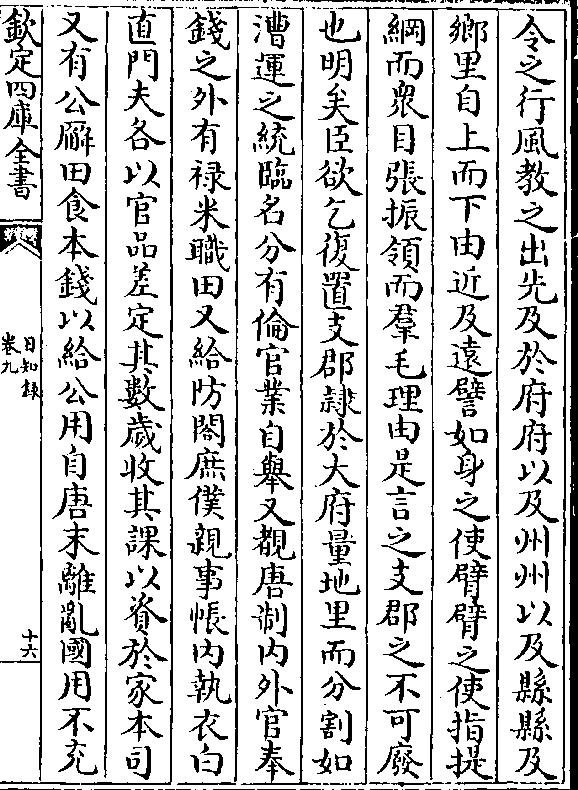 令之行風教之出先及於府府以及州州以及縣縣及
鄉里自上而下由近及遠譬如身之使臂臂之使指提
綱而衆目張振領而羣毛理由是言之支郡之不可廢
也明矣臣欲乞復置支郡隷於大府量地里而分割如
漕運之統臨名分有倫官業自舉又覩唐制内外官奉
錢之外有禄米職田又給防閤庶僕親事帳内執衣白
直門夫各以官品差定其數歲收其課以資於家本司
又有公廨田食本錢以給公用自唐末離亂國用不充
欽定四庫全書
日知録
卷九
十六